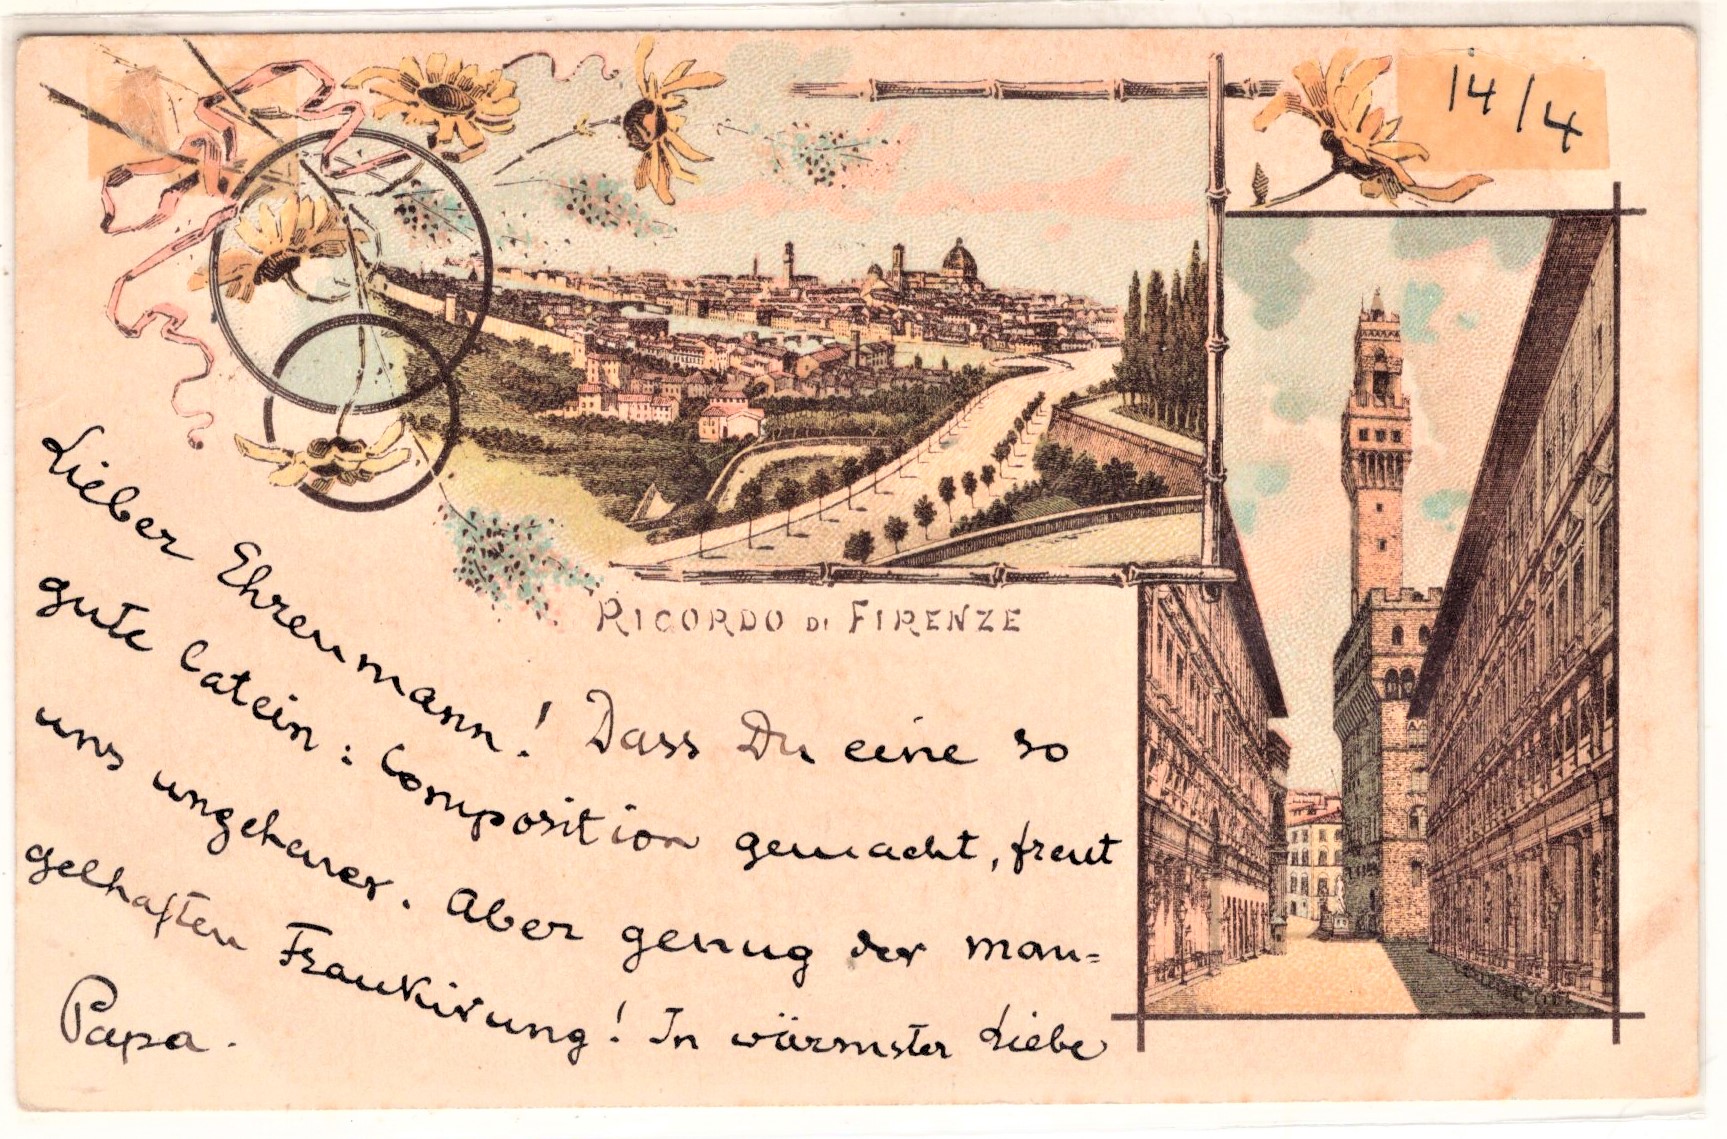 14/4
RICORDO DI FIRENZE
Lieber Ehrenmann! Dass Du eine so
gute Latein: Composition gemacht, freut
uns ungeheuer. Aber genug der man=
gelhaften Frankirung! In wärmster Liebe
Papa.